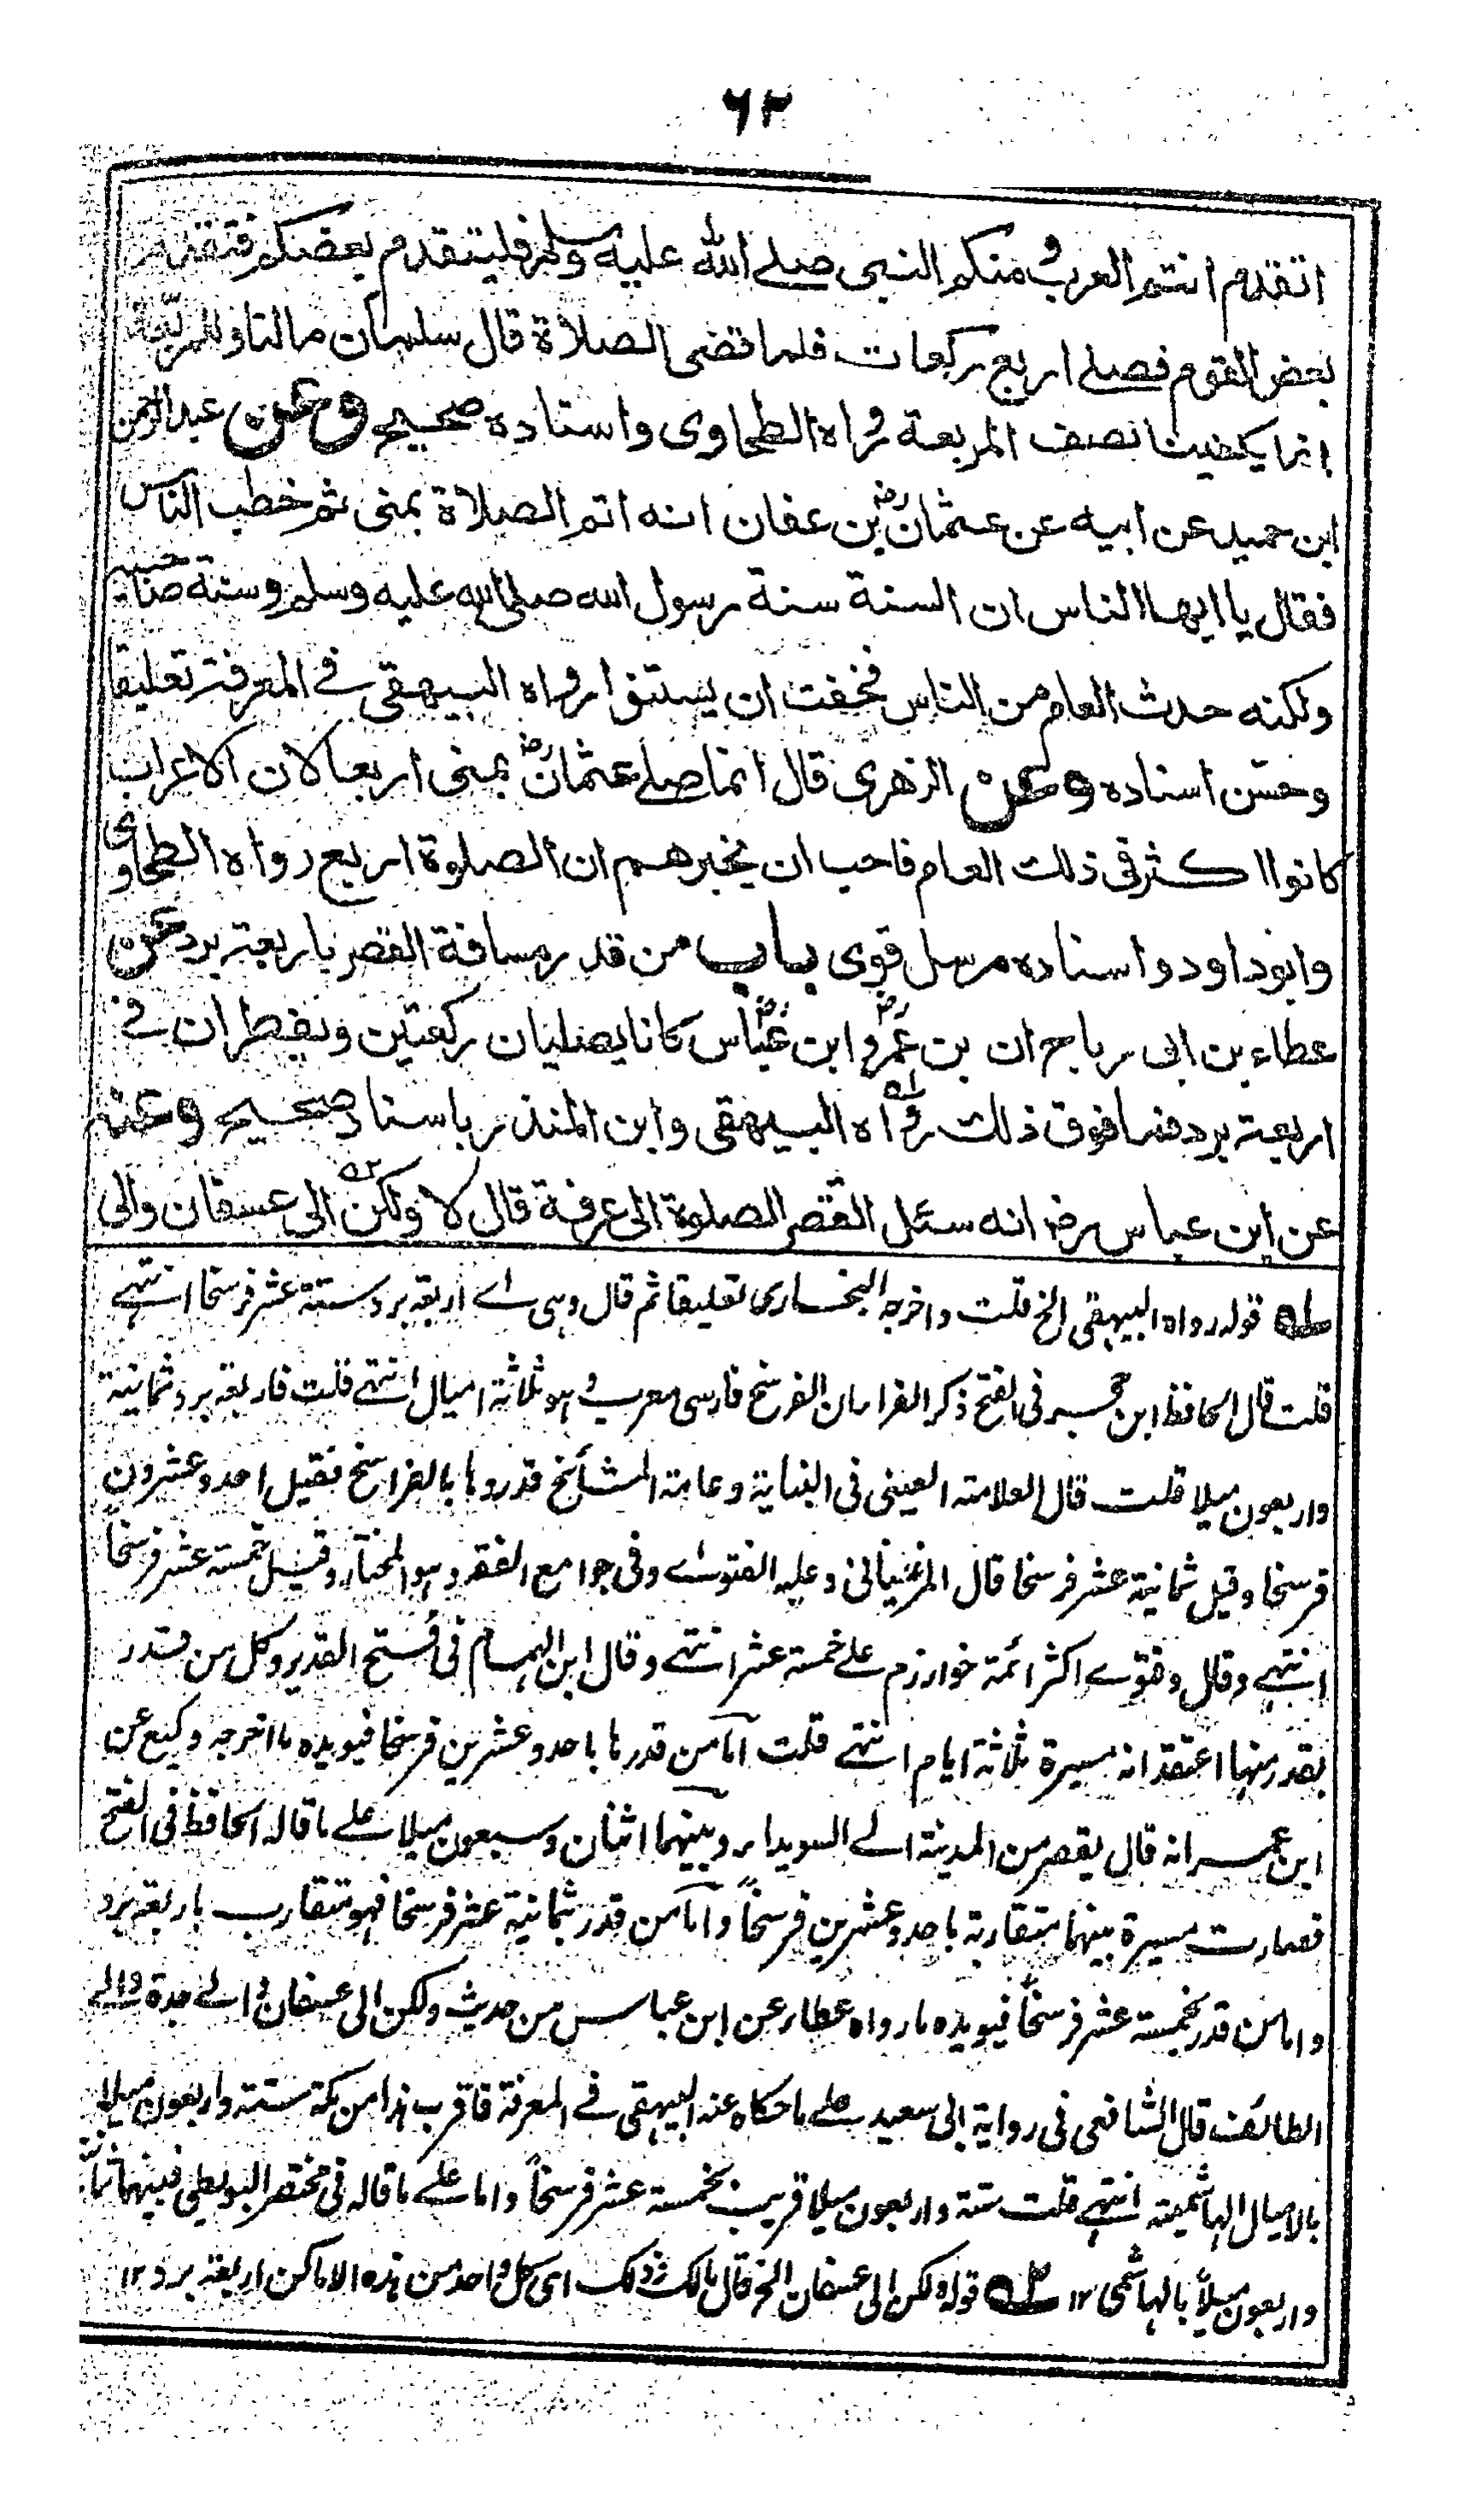 ٦٢
اتقدم انتم العرب ومنكم النبى صلے الله عليه وسلم فليتقدم بعضكم فتقدم
بعض القوم فصلے اربع ركعات فلما قضى الصلاة قال سلمان مالنا وللمربّعة
انما يكفينا نصف المربعة رواه الطحاوى واسناده صحيح وعن عبد الرحمن
ابن حميد عن ابيه عن عثمانؓ بن عفان انه اتم الصلاة بمنى ثم خطب الناس
فقال يا ايها الناس ان السنة سنة رسول الله صلى الله عليه وسلم وسنة صاحبيه
ولكنه حدث العام من الناس فخفت ان يستنوا رواه البيهقى فے المعرفة تعليقا
وحسّن اسناده وعن الزهرى قال انما صلے عثمانؓ بمنى اربعا لان الاعراب
كانوا اكثر فى ذلك العام فاحب ان يخبرهم ان الصلوة اربع رواه الطحاوى
وابوداود واسناده مرسل قوى باب من قدر مسافة القصر باربعة برد عن
عطاء بن ابى رباح ان بن عمرؓ وابن عباسؓ كانا يصليان ركعتين ويفطران فے
اربعة برد فما فوق ذلك رواه ١ه البيهقى وابن المنذر باسناد صحيح وعنه
عن ابن عباس رض انه سئل القصر الصلوة الى عرفة قال لا ولكن ٢ه الى عسفان والى
١ه قوله رواه البيهقى الخ قلت واخرجه البخارى تعليقا ثم قال وهى اے اربعة برد ستة عشر فرسخا انتهے
قلت قال الحافظ ابن حجر فى الفتح ذكر الفراء ان الفرسخ فارسى معرب وهو ثلاثة اميال انتهے قلت فاربعة برد ثمانية
واربعون ميلا قلت قال العلامة العينى فى البناية وعامة المشائخ قدروها بالفراسخ فقيل احد وعشرون
فرسخا وقيل ثمانية عشر فرسخا قال المرغينانى وعليه الفتوے وفى جوامع الفقه وهو المختار وقيل خمسة عشر فرسخاً
انتهے وقال وفتوے اكثر ائمة خوارزم علے خمسة عشر انتهے وقال ابن الهمام فى فتح القدير وكل من قدر
بقدر منها اعتقد انه مسيرة ثلاثة ايام انتهے قلت اما من قدرها باحد وعشرين فرسخا فيويده ما اخرجه وكيع عن
ابن عمر انه قال يقصر من المدينة الے السويداء وبينهما اثنان وسبعون ميلا علے ما قاله الحافظ فى الفتح
فصارت مسيرة بينهما متقاربة باحد وعشرين فرسخاً واما من قدر ثمانية عشر فرسخا فهو متقارب باربعة برد
واما من قدر بخمسة عشر فرسخاً فيويده ما رواه عطاء عن ابن عباس من حديث ولكن الى عسفان والے جدة والے
الطائف قال الشافعى فى رواية ابى سعيد علے ما حكاه عنه البيهقى فے المعرفة فاقرب هذا من مكة ستة واربعون ميلا
بالاميال الهاشمية انتهے قلت ستة واربعون ميلا قريب بخمسة عشر فرسخاً واما علے ما قاله فى مختصر البويطى فبينهما ثمانية
واربعون ميلاً بالهاشمى ١٢ ٢ه قوله ولكن الى عسفان الخ قال مالك وذلك اى كل واحد من هذه الاماكن اربعة برد ١٢